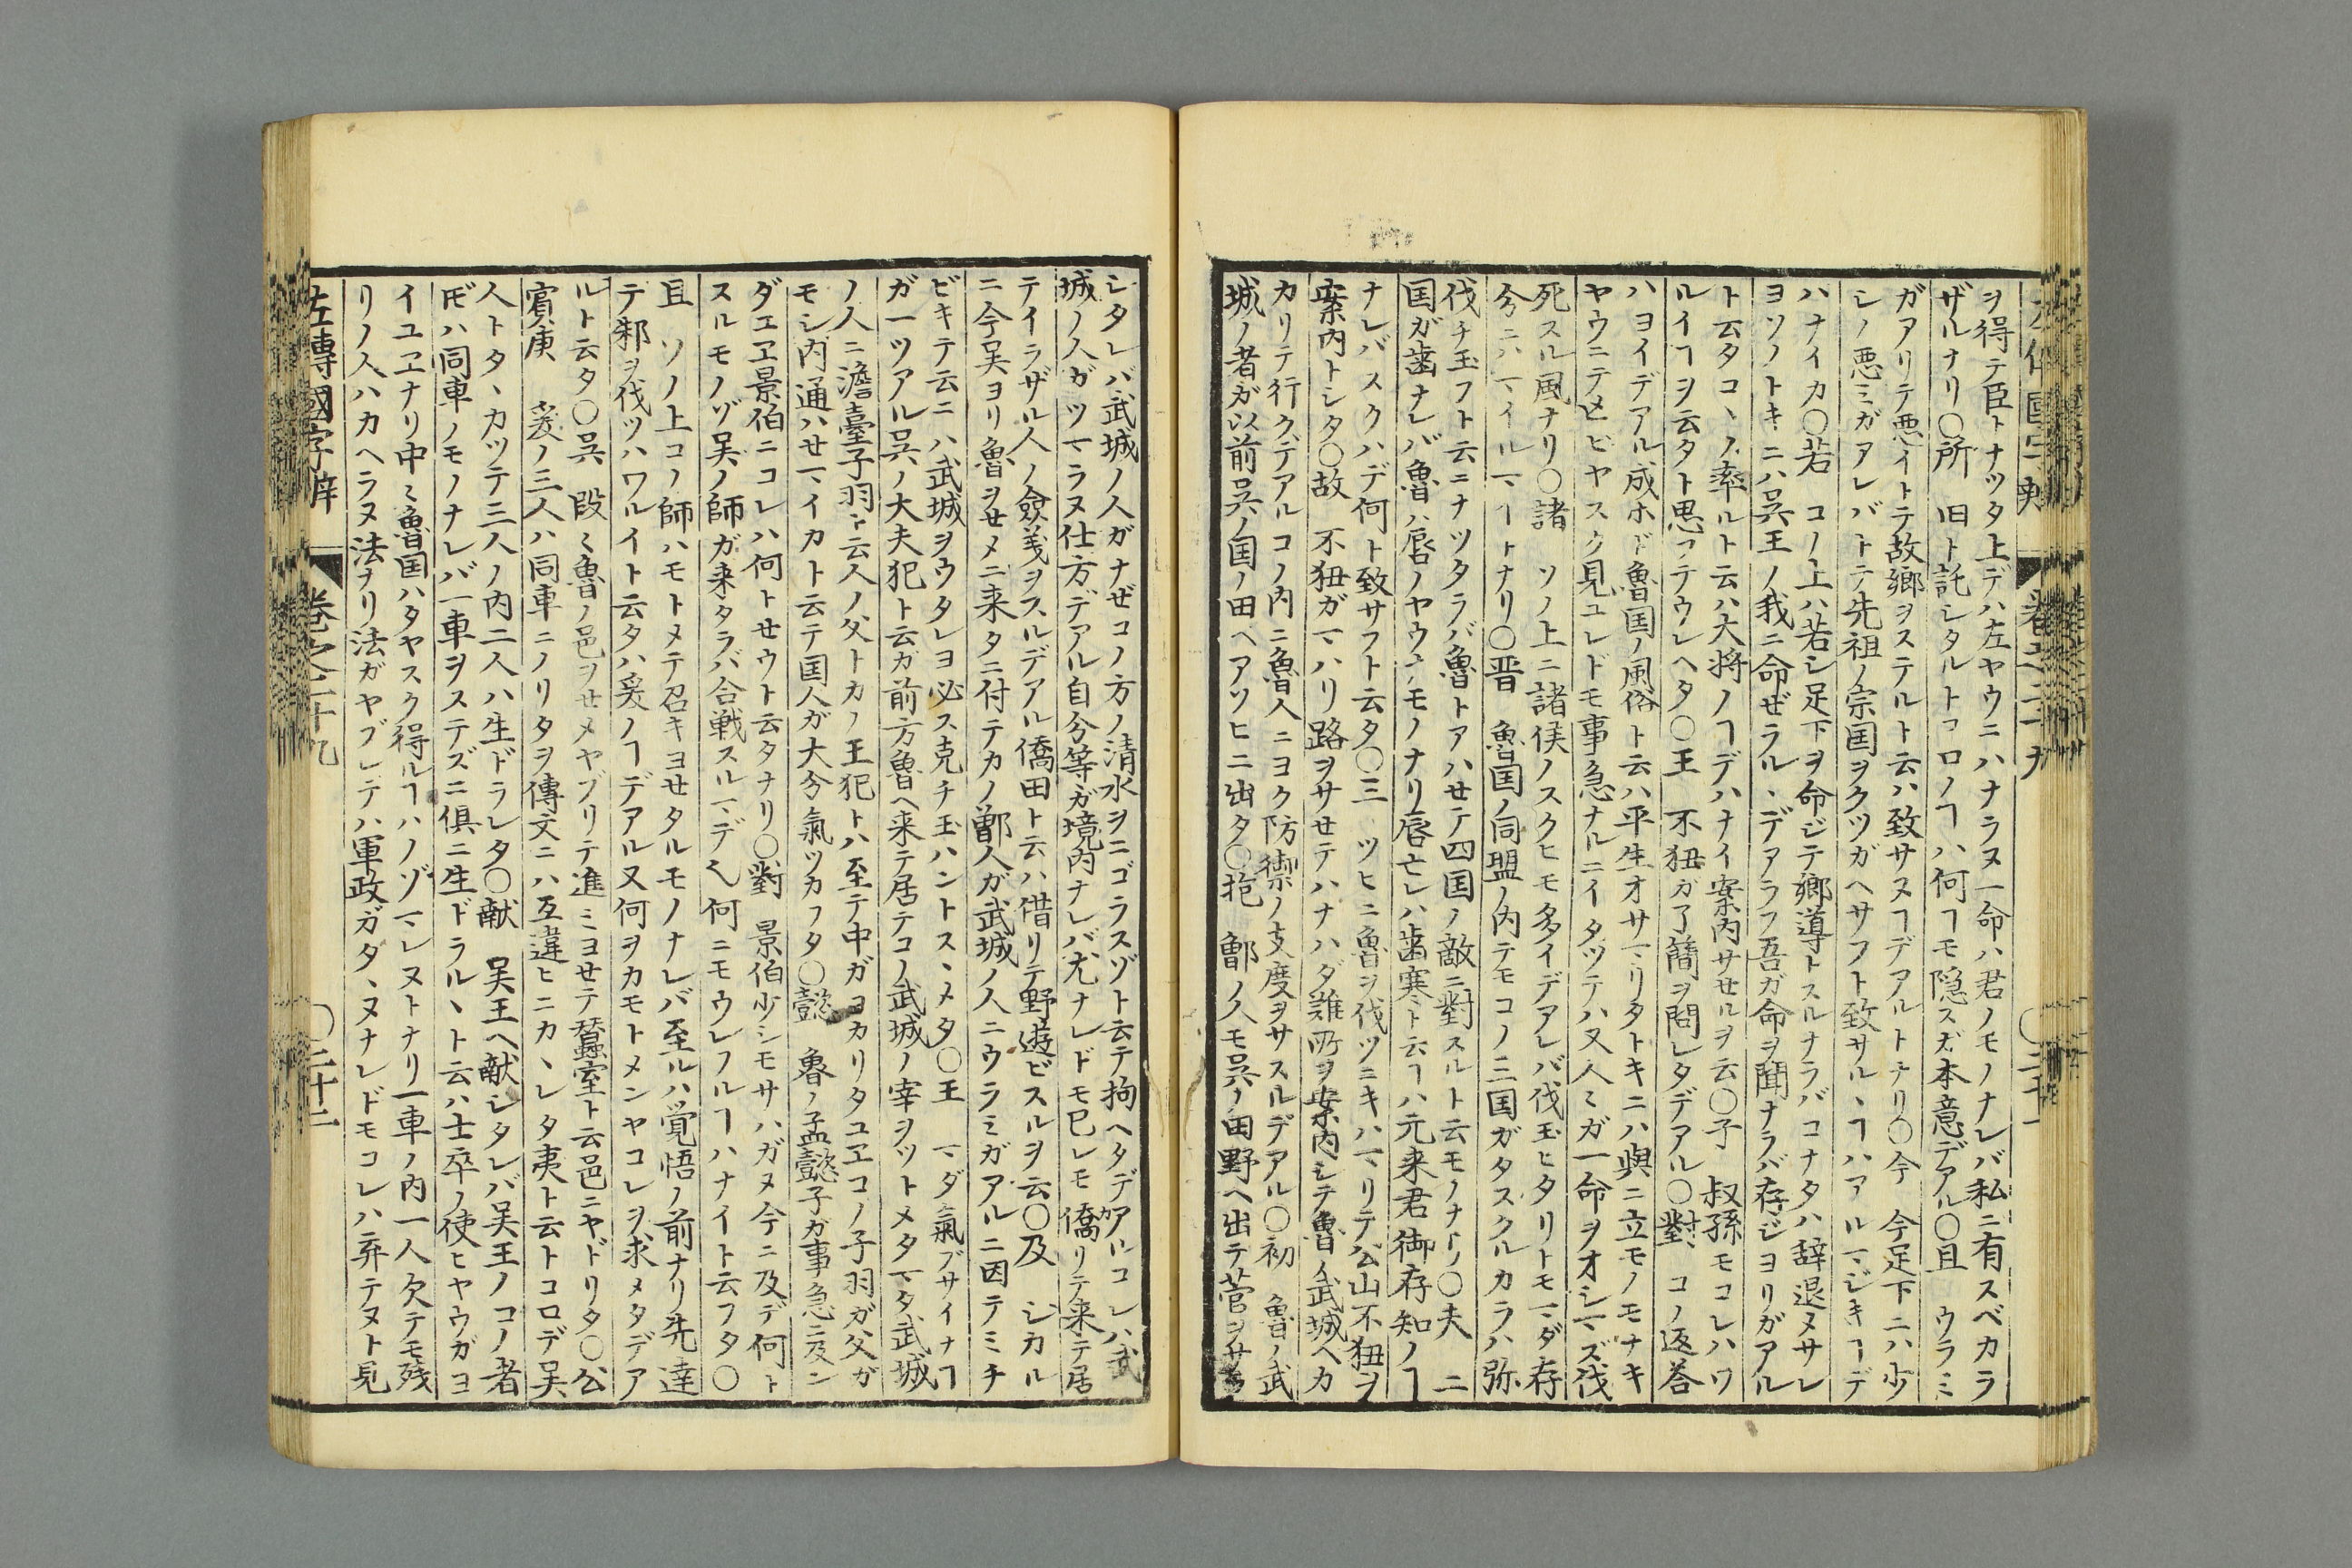 ヲ得テ臣トナツタ上デハ左ヤウニハナラヌ一命ハ君ノモノナレバ私ニ有スベカラ
ザルナリ〇所　旧ト託シタルトコロノヿハ何ヿモ隠スガ本意デアル〇且　ウラミ
ガアリテ悪イトテ故郷ヲステルト云ハ致サヌヿデアルトナリ〇今　今足下ニハ少
シノ悪ミガアレバトテ先祖ノ宗国ヲクツガヘサフト致サルヽヿハアルマジキヿデ
ハナイカ〇若　コノ上ハ若シ足下ヲ命ジテ郷導トスルナラバコナタハ辞退ヌサレ
ヨソノトキニハ呉王ノ我ニ命ゼラルヽデアラフ吾ガ命ヲ聞ナラバ存ジヨリガアル
ト云タコヽノ率ルト云ハ大将ノヿデハナイ案内サセルヲ云〇子　叔孫モコレハワ
ルイヿヲ云タト思フテウレヘタ〇王　不狃ガ了簡ヲ問レタデアル〇對　コノ返答
ハヨイデアル成ホド魯国ノ風俗ト云ハ平生オサマリタトキニハ與ニ立モノモナキ
ヤウニテ𪜈ビヤスク見ユレドモ事急ナルニイタツテハ又人〻ガ一命ヲオシマズ伐
死スル風ナリ〇諸　ソノ上ニ諸侯ノスクヒモ多イデアレバ伐玉ヒタリトモマダ存
分ニハマイルマヿトナリ〇晋　魯国ノ同盟ノ内テモコノ三国ガタスクルカラハ弥
伐チ玉フト云ニナツタラバ魯トアハセテ四国ノ敵ニ對スルト云モノナリ〇夫　二
国ガ歯ナレバ魯ハ唇ノヤウナモノナリ唇亡レハ歯寒ト云ヿハ元来君御存知ノヿ
ナレバスクハデ何ト致サフト云タ〇三　ツヒニ魯ヲ伐ツニキハマリテ公山不狃ヲ
案内トシタ〇故　不狃ガマハリ路ヲサセテハナハダ難所ヲ案内シテ魯ノ武城ヘカ
カリテ行クデアルコノ内ニ魯人ニヨク防禦ノ支度ヲサスルデアル〇初　魯ノ武
城ノ者ガ以前呉ノ国ノ田ヘアソヒニ出タ〇拘　鄫ノ人モ呉ノ田野ヘ出テ菅ヲサラ
シタレバ武城ノ人ガナゼコノ方ノ清水ヲニゴラスゾト云テ拘ヘタデアルコレハ武
城ノ人ガツマラヌ仕方デアル自分等ガ境内ナレバ尤ナレドモ已レモ僑リテ来テ居
テイラザル人ノ僉義ヲスルデアル僑田ト云ハ借リテ野遊ビスルヲ云〇及　シカル
ニ今呉ヨリ魯ヲセメニ来タニ付テカノ鄫人ガ武城ノ人ニウラミガアルニ因テミチ
ビキテ云ニハ武城ヲウタレヨ必ス克チ玉ハントスヽメタ〇王　マダ氣ブサイナヿ
ガ一ツアル呉ノ大夫犯ト云ガ前方魯ヘ来テ居テコノ武城ノ宰ヲツトメタマタ武城
ノ人ニ澹臺子羽ト云人ノ父トカノ王犯トハ至テ中ガヨカリタユヱコノ子羽ガ父ガ
モシ内通ハセマイカト云テ国人ガ大分氣ツカフタ〇懿　魯ノ孟懿子ガ事急ニ及ン
ダユヱ景伯ニコレハ何トセウト云タナリ〇對　景伯少シモサハガヌ今ニ及デ何ト
スルモノゾ呉ノ師ガ来タラバ合戦スルマデ〻何ニモウレフルヿハナイト云フタ〇
且　ソノ上コノ師ハモトメテ召キヨセタルモノナレバ至ルハ覚悟ノ前ナリ先達
テ邾ヲ伐ツハワルイト云タハ爰ノヿデアル又何ヲカモトメンヤコレヲ求メタデア
ルト云タ〇呉　段〻魯ノ邑ヲセメヤブリテ進ミヨセテ蠶室ト云邑ニヤドリタ〇公
賓庚　爰ノ三人ハ同車ニノリタヲ傳文ニハ互違ヒニカヽレタ夷ト云トコロデ呉
人トタヽカツテ三人ノ内二人ハ生ドラレタ〇献　呉王ヘ献シタレバ呉王ノコノ者
𪜈ハ同車ノモノナレバ一車ヲステズニ俱ニ生ドラルヽト云ハ士卒ノ使ヒヤウガヨ
イユヱナリ中〻魯国ハタヤスク得ルヿハノゾマレヌトナリ一車ノ内一人欠テモ残
リノ人ハカヘラヌ法ナリ法ガヤブレテハ軍政ガタヽヌナレドモコレハ弃テヌト見
左傳國字辯　卷之二十九　〇二十二